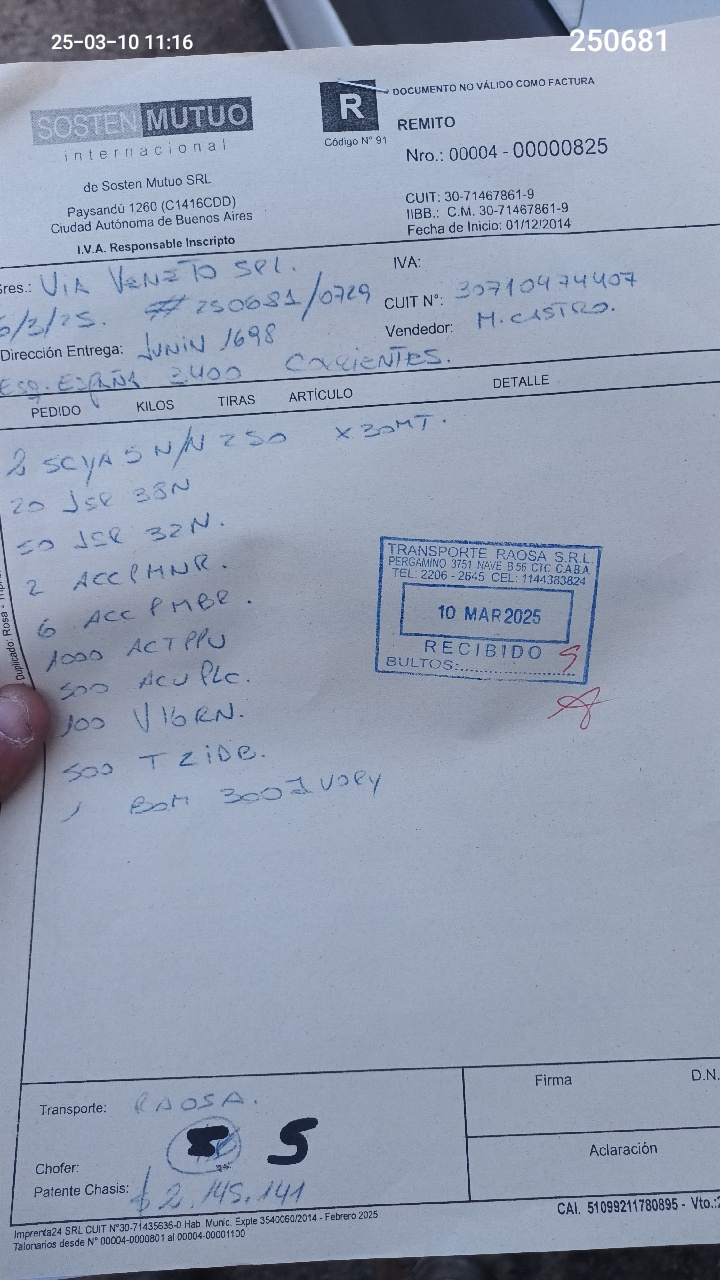 25-03-10 11:16
250681
SOSTEN MUTUO
internacional
de Sosten Mutuo SRL
Paysandú 1260 (C1416CDD)
Ciudad Autónoma de Buenos Aires
I.V.A. Responsable Inscripto
R
Código N° 91
DOCUMENTO NO VÁLIDO COMO FACTURA
REMITO
Nro.: 00004 - 00000825
CUIT: 30-71467861-9
IIBB.: C.M. 30-71467861-9
Fecha de Inicio: 01/12/2014
res.: VIA VENETO SRL.
IVA:
/3/25. # 250681/0729
CUIT N°: 30710474407
Dirección Entrega: JUNIN 1698
Vendedor: M. CASTRO.
ESQ. ESPAÑA 3400 CORRIENTES.
PEDIDO KILOS TIRAS ARTÍCULO DETALLE
2 SCYA 5 N/N 250 X 30MT.
20 JSR 38N
50 JSR 32N.
2 ACCPMNR.
6 ACC PMBR.
1000 ACTPPU
500 ACU PLC.
100 V16RN.
500 T ZIDB.
1 BOM 300 IVORY
TRANSPORTE RAOSA S.R.L.
PERGAMINO 3751 NAVE B 56 CTC C.A.B.A.
TEL: 2206 - 2645 CEL: 1144383824
10 MAR 2025
RECIBIDO
BULTOS: 5
Duplicado: Rosa -
Transporte: RAOSA.
5
Chofer:
Patente Chasis: $ 2.145.141
Firma
D.N.
Aclaración
Imprenta24 SRL CUIT N°30-71435636-0 Hab. Munic. Exple 3540060/2014 - Febrero 2025
Talonarios desde N° 00004-0000801 al 00004-00001100
CAI. 51099211780895 - Vto.: